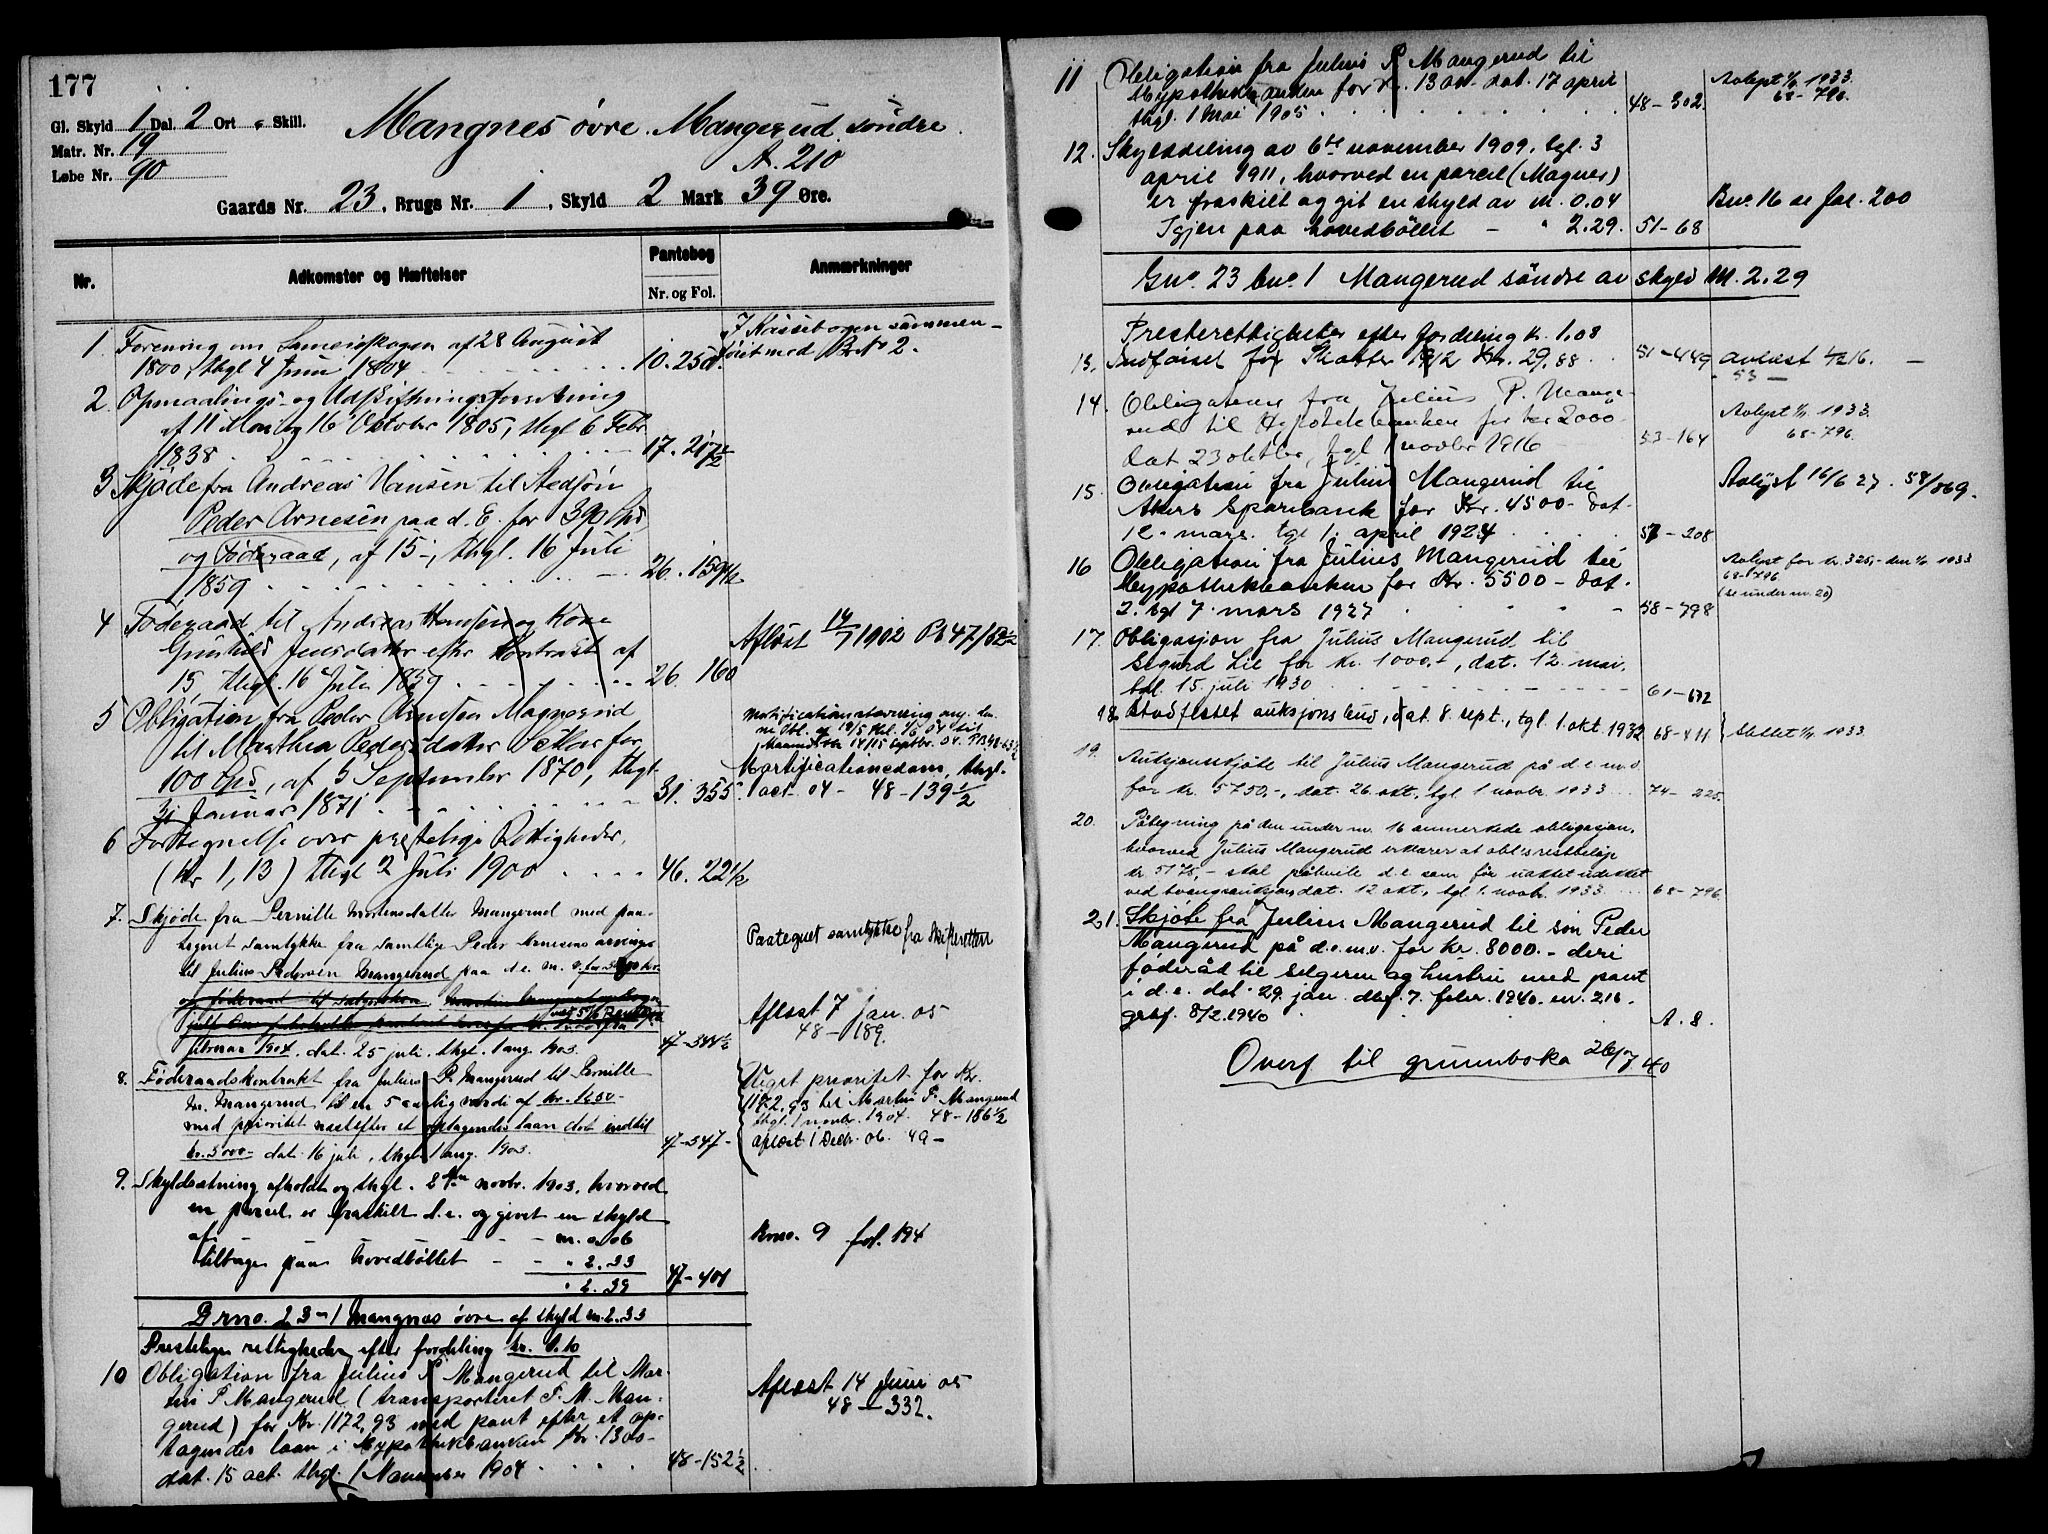 177
Gl. Skyld 1 Dal. 2 Ort " Skill.
Matr. Nr. 19
Løbe Nr. 90
Mangnes øvre. Mangerud söndre.
A. 210
Gaards Nr. 23, Brugs Nr. 1, Skyld 2 Mark 39 Øre.
Nr.
Adkomster og Hæftelser
Pantebog
Nr. og Fol.
Anmærkninger
1. Forening om Sameieskogen af 28 August
1800, thgl 4 Juni 1804 10. 250.
2. Opmaalings- og Udskiftningsforretning
af 11 Mai og 16 Oktober 1805, thgl 6 Febr.
1838 17. 217½
3 Skjøde fra Andreas Hansen til Stedsøn
Peder Arnesen paa d. E. for 390 Spd
og Føderaad, af 15, thgl. 16 Juli
1859 26. 159½
4 Føderaad til Andreas Hansen og Kone
Gunhild Jensdatter efter Kontrakt af
15, thgl. 16 Juli 1859 26. 160
Afløst 14/7 1902 Pb 47/52½
5 Obligation fra Peder Arnesen Magnerud
til Marthea Pedersdatter for
100 Spd, af 5 September 1870, thgl.
31 Januar 1871 31. 355.
Mortificationsdom, thgl.
1 oct. 04 - 48-139½
6 Fortegnelse over præstelige Rettigheder,
(Kr 1,13) thgl 2 Juli 1900 46. 22½
7. Skjøde fra Pernille Mortensdatter Mangerud med paa-
tegnet samtykke fra samtlige Peder Arnesens arvinge
til Julius Pedersen Mangerud paa d.e. m. v. for
Paategnet samtykke fra Skifteretten
februar 1904. dat. 25 juli, thgl. 1 aug. 1903. 47-344½
Aflæst 7 Jan. 05
48-189.
8. Føderaadskontrakt fra Julius P. Mangerud til Pernille
M. Mangerud til en 5 aarlig værdi af kr.
med prioritet næstefter et optagendes laan indtil
kr. 5000- dat. 16 juli, thgl. 1 aug. 1903. 47-347-
Veget prioritet for Kr.
1172,93 til Martin P. Mangerud
thgl. 1 novbr. 1904. 48-186½
aflæst 1 Decbr. 06. 49-
9. Skyldsætning afholdt og thgl. 2den novbr. 1903, hvorved
en parcel er fraskilt d.e. og givet en skyld
af - - m. 0.06
tilbage paa hovedbøllet - - " 2.33
" 2.39 47-401
Brno. 9 fol. 194
Brno. 23-1 Mangnæs øvre af skyld m. 2.33
Prestelige rettigheder efter fordeling kr. 1.10
10 Obligation fra Julius P Mangerud til Mar-
tin P Mangerud (transporteret F. M. Man-
gerud) for Kr. 1172,93 med pant efter et op-
tagendes laan i Hypothekbanken Kr. 1300-
dat. 15 oct. thgl. 1 November 1904 48-152½
Aflæst 14 Juni 05
48-332.
11 Obligation fra Julius P Mangerud til
Hypothekbanken for kr. 1300- dat. 17 april
thgl. 1 Mai 1905 48-302.
Avlyst 1/11 1933.
68-796.
12. Skylddeling av 6te november 1909, tgl. 3
april 1911, hvorved en parcel (Magnes)
er fraskilt og git en skyld av m. 0.04
Igjen paa hovedböllet - " 2.29. 51-68
Bno. 16 se fol. 200
Gno. 23 bno. 1 Mangerud söndre av skyld M. 2.29
Presterettigheter efter fordeling kr. 1.08
13. Indförsel for Skatter 1912 Kr. 29.88 51-449 avlæst 1/7 16.
53
14. Obligation fra Julius P. Mange-
rud til Hypotekbanken for kr 2000
dat. 23 oktbr, tgl 1 novbr 1916 53-164
Avlyst 1/11 1933.
68-796.
15. Obligation fra Julius Mangerud til
Akers Sparebank for Kr. 4500- dat.
12. mars. tgl 1. april 1924 57-208
Avlyst 16/6 27. 58/869.
16 Obligation fra Julius Mangerud til
Hypothekbanken for Kr. 5500- dat.
2. tgl 7. mars 1927 58-798
Avlyst for kr. 325,- den 1/11 1933
68-796
(se under nr. 20)
17. Obligasjon fra Julius Mangerud til
Sigurd Lie for kr. 1000,-, dat. 12. mai,
tgl. 15. juli 1930 61-672
18. Stadfestet auksjonsbud, dat. 8. sept., tgl. 1. okt. 1932 68-411
Slettet 1/11 1933.
19. Auksjonsskjöte til Julius Mangerud på d.e. m.v.
for kr. 5750,-, dat. 26. okt., tgl 1 novbr. 1933 74-225.
20. Påtegning på den under nr. 16 anmerkede obligasjon,
hvorved Julius Mangerud erklærer at obl.s restbelöp
kr. 5175,- skal påhvile d.e. som för uaktet udekket
ved tvangsauksjon, dat. 12 okt., tgl. 1. novbr. 1933 68-796
21. Skjöte fra Julius Mangerud til sön Peder
Mangerud på d.e. m.v. for kr. 8000.- deri
föderåd til selgeren og hustru med pant
i d.e. dat. 29. jan. dbf. 7. febr. 1940. nr. 216.
grbf. 8/2. 1940 A. 8.
Overf til grunnboka 26/7 40